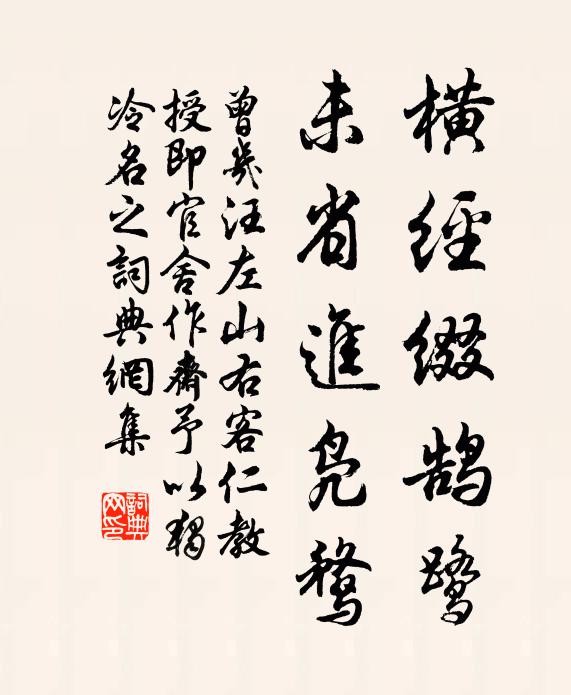 橫經綴鵠鷺
未省進鳧鶩
曾幾汪左山右客仁教
授即官舍作齋予以獨
冷名之詞典網集
詞典網印